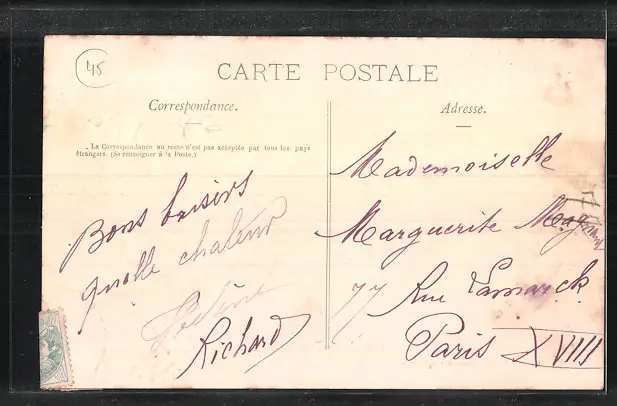 45
CARTE POSTALE
Correspondance.
La Correspondance au recto n'est pas acceptée par tous les pays
étrangers. (Se renseigner à la Poste.)
Bons baisers
quelle chaleur
Hélène
Richard
Adresse.
Mademoiselle
Marguerite
77 Rue Lamarck
Paris XVIII